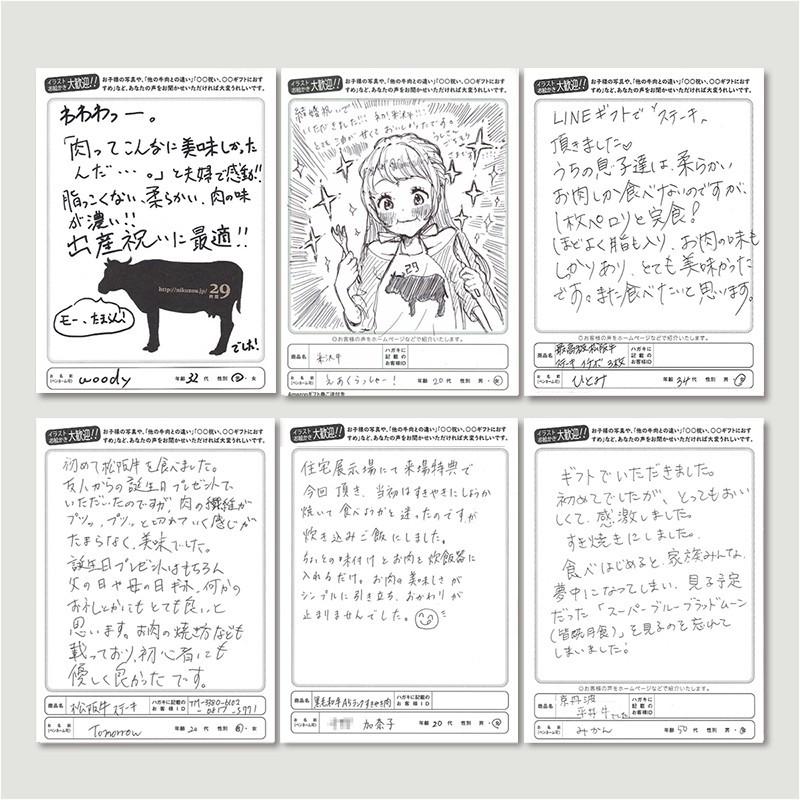 イラスト
お絵かき 大歓迎!!
お子様の写真や、「他の牛肉との違い」「○○祝い、○○ギフトにおす
すめ」など、あなたの声をお聞かせいただければ大変うれしいです。
わわわっー。
「肉ってこんなに美味しかった
んだ…。」と夫婦で感動!!
脂っこくない、柔らかい、肉の味
が濃い!!
出産祝いに最適!!
http://nikuzou.jp/ 29
モー、たまらん!
でした!
お名前
(ペンネーム可) woody 年齢 32 代 性別 男・女
イラスト
お絵かき 大歓迎!!
お子様の写真や、「他の牛肉との違い」「○○祝い、○○ギフトにおす
すめ」など、あなたの声をお聞かせいただければ大変うれしいです。
結婚祝いで
いただきました!!
とても油が甘くておいしかったです。
29
○お客様の声をホームページなどで紹介いたします。
商品名 米沢牛 ハガキに記載のお客様ID
お名前
(ペンネーム可) 年齢 20 代 性別 男・女
イラスト
お絵かき 大歓迎!!
お子様の写真や、「他の牛肉との違い」「○○祝い、○○ギフトにおす
すめ」など、あなたの声をお聞かせいただければ大変うれしいです。
LINEギフトで"ステーキ"
頂きました♡
うちの息子達は、柔らかい
お肉しか食べないのですが、
1枚ペロリと完食!
ほどよく脂も入り、お肉の味も
しかりあり、とても美味かった
です。また食べたいと思います。
○お客様の声をホームページなどで紹介いたします。
商品名 最高級松阪牛
ステーキ イチボ 3枚 ハガキに記載のお客様ID
お名前
(ペンネーム可) ひとみ 年齢 34 代 性別 男・女
イラスト
お絵かき 大歓迎!!
お子様の写真や、「他の牛肉との違い」「○○祝い、○○ギフトにおす
すめ」など、あなたの声をお聞かせいただければ大変うれしいです。
初めて松阪牛を食べました。
友人からの誕生日プレゼントで
いただいたのですが、肉の繊維が
プツッ、プツッと切れていく感じが
たまらなく、美味でした。
誕生日プレゼントはもちろん
父の日や母の日ギフト、何かの
お礼とかにもとても良いと
思います。お肉の焼き方なども
載っており、初心者にも
優しく良かったです。
商品名 松阪牛ステーキ ハガキに記載のお客様ID
お名前
(ペンネーム可) Tomorrow 年齢 20 代 性別 男・女
イラスト
お絵かき 大歓迎!!
お子様の写真や、「他の牛肉との違い」「○○祝い、○○ギフトにおす
すめ」など、あなたの声をお聞かせいただければ大変うれしいです。
住宅展示場にて来場特典で
今回頂き、当初はすきやきにしようか
焼いて食べようかと迷ったのですが
炊き込みご飯にしました。
ちょっとの味付けとお肉を炊飯器に
入れるだけ。お肉の美味しさが
シンプルに引き立ち、おかわりが
止まりませんでした。
商品名 黒毛和牛A5ランクすきやき肉 ハガキに記載のお客様ID
お名前
(ペンネーム可) 加奈子 年齢 20 代 性別 男・女
イラスト
お絵かき 大歓迎!!
お子様の写真や、「他の牛肉との違い」「○○祝い、○○ギフトにおす
すめ」など、あなたの声をお聞かせいただければ大変うれしいです。
ギフトでいただきました。
初めてでしたが、とってもおいし
くて、感激しました。
すき焼きにしました。
食べはじめると、家族みんな、
夢中になってしまい、見る予定
だった「スーパーブルーブラッドムーン
(皆既月食)」を見るのを忘れて
しまいました!
○お客様の声をホームページなどで紹介いたします。
商品名 京丹波
平井牛でした ハガキに記載のお客様ID
お名前
(ペンネーム可) みかん 年齢 50 代 性別 男・女